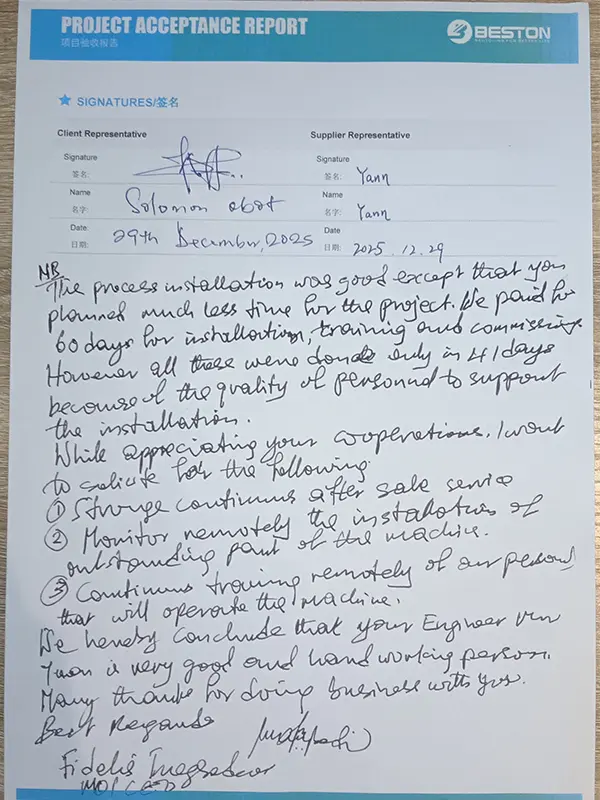 PROJECT ACCEPTANCE REPORT
项目验收报告
BESTON
★ SIGNATURES/签名
Client Representative
Supplier Representative
Signature
签名:
Signature
签名: Yann
Name
名字: Solomon obot
Name
名字: Yann
Date
日期: 29th December, 2025
Date
日期: 2025.12.29
NB
The process installation was good except that you
planned much less time for the project. We paid for
60 days for installation, training and commissing
However all these were done only in 41 days
because of the quality of personnel to support
the installation.
While appreciating your cooperations. I want
to solicite for the following
① Stronge continuos after sale service
② Monitor remotely the installation of
outstanding part of the machine.
③ Continuos training remotely of our personnel
that will operate the machine.
We hereby conclude that your Engineer
is very good and hard working person.
Many thanks for doing business with you.
Best Regards
Fidelis